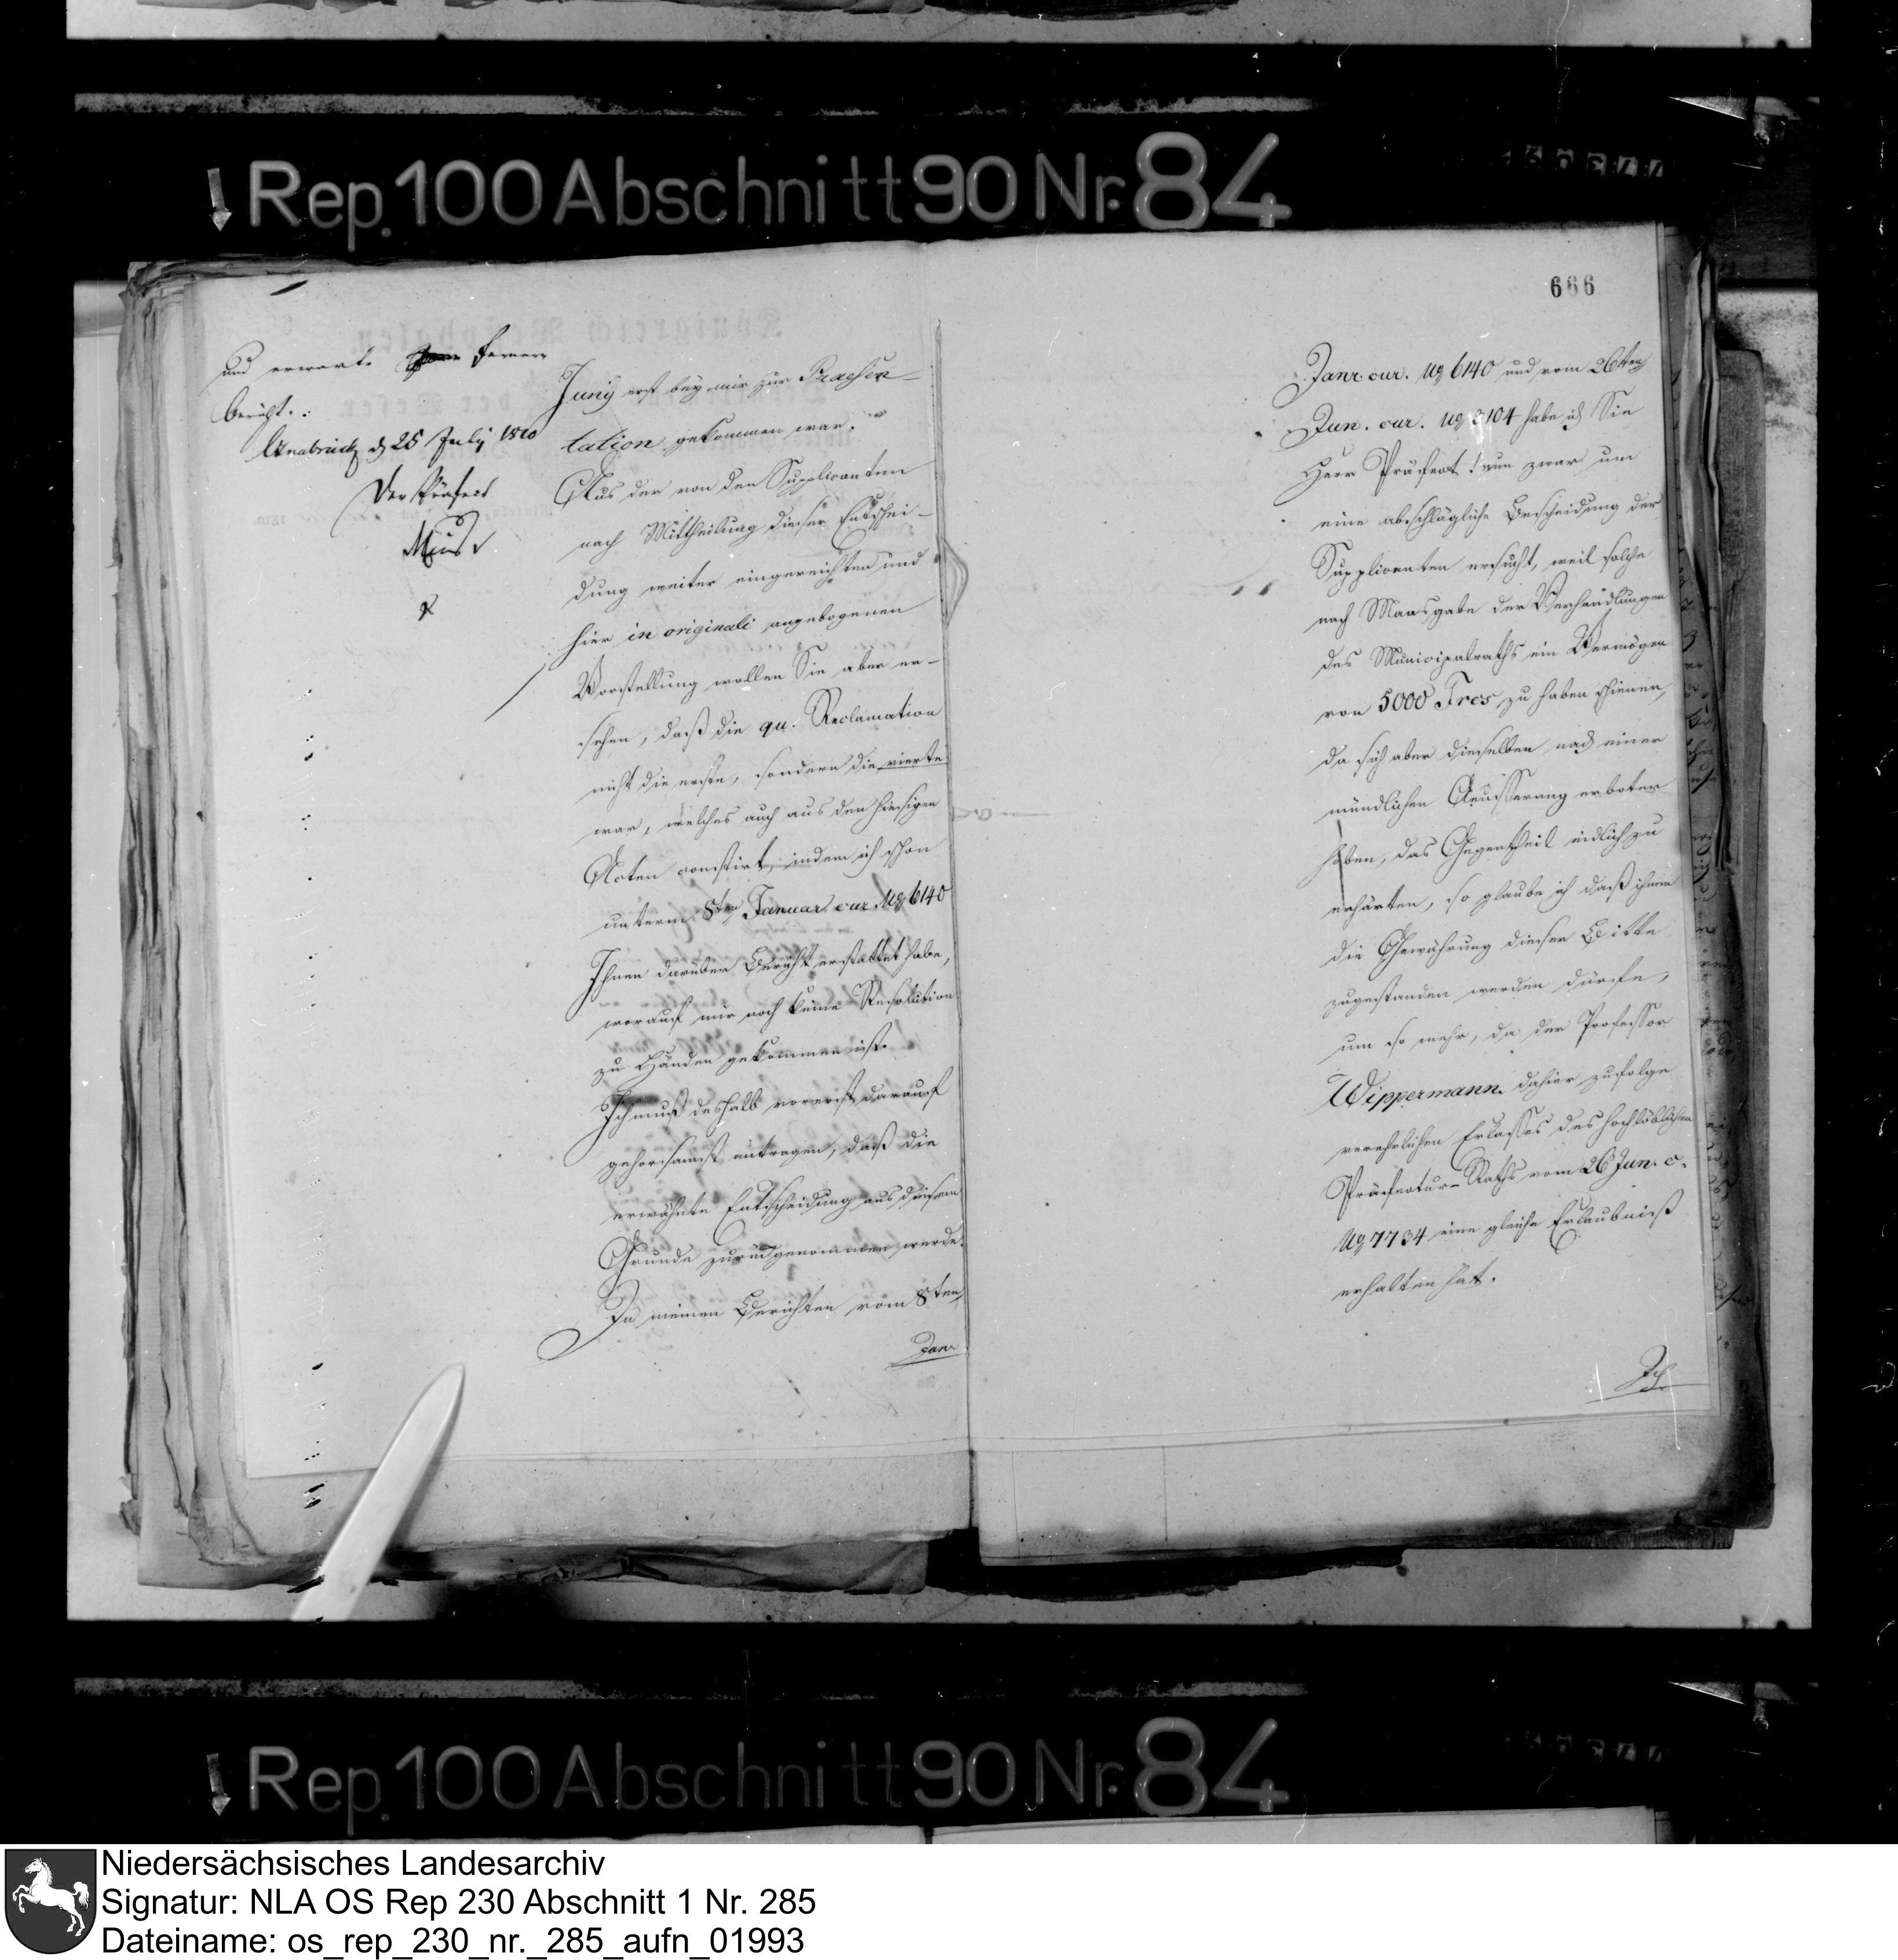 Rep. 100 Abschnitt 90 Nr. 84
666
und erwarte fernern
Bericht.
Osnabrück d 25 July 1810
Der Präfect
Juny erst bey mir zur Praesen-
tation gekommen war.
Aus der von den Supplicanten
nach Mittheilung dieser Entschei-
dung weiter eingereichten und
hier in originali angebogenen
Vorstellung wollen Sie aber er-
sehen, daß die qu. Reclamation
nicht die erste, sondern die vierte
war, welches auch aus den hiesigen
Acten constirt, indem ich schon
unterm 8ten Januar cur. No 6140
Ihnen darüber Bericht erstattet habe,
worauf mir noch keine Resolution
zu Händen gekommen ist.
Ich muß deshalb vorerst darauf
gehorsamst antragen, daß die
erwähnte Entscheidung aus diesem
Grunde zurückgenommen werde.
In meinen Berichten vom 8ten
Janr
Janr. cur. No 6140 und vom 26ten
Jun. cur. No 3104 habe ich Sie
Herr Präfect! nun zwar um
eine abschlägliche Bescheidung der
Supplicanten ersucht, weil solche
nach Maasgabe der Verhandlungen
des Municipalraths ein Vermögen
von 5000 Frcs zu haben schienen,
da sich aber dieselben nach einer
mündlichen Aeusserung erboten
haben, das Gegentheil eidlich zu
erhärten, so glaube ich daß ihnen
die Gewährung dieser Bitte
zugestanden werden dürfe,
um so mehr, da der Professor
Wippermann dahier zufolge
verehrlichen Erlasses des hochlöblichen
Präfectur-Raths vom 26 Jun. c.
No 7734 eine gleiche Erlaubniß
erhalten hat.
Ich
Rep. 100 Abschnitt 90 Nr. 84
Niedersächsisches Landesarchiv
Signatur: NLA OS Rep 230 Abschnitt 1 Nr. 285
Dateiname: os_rep_230_nr._285_aufn_01993